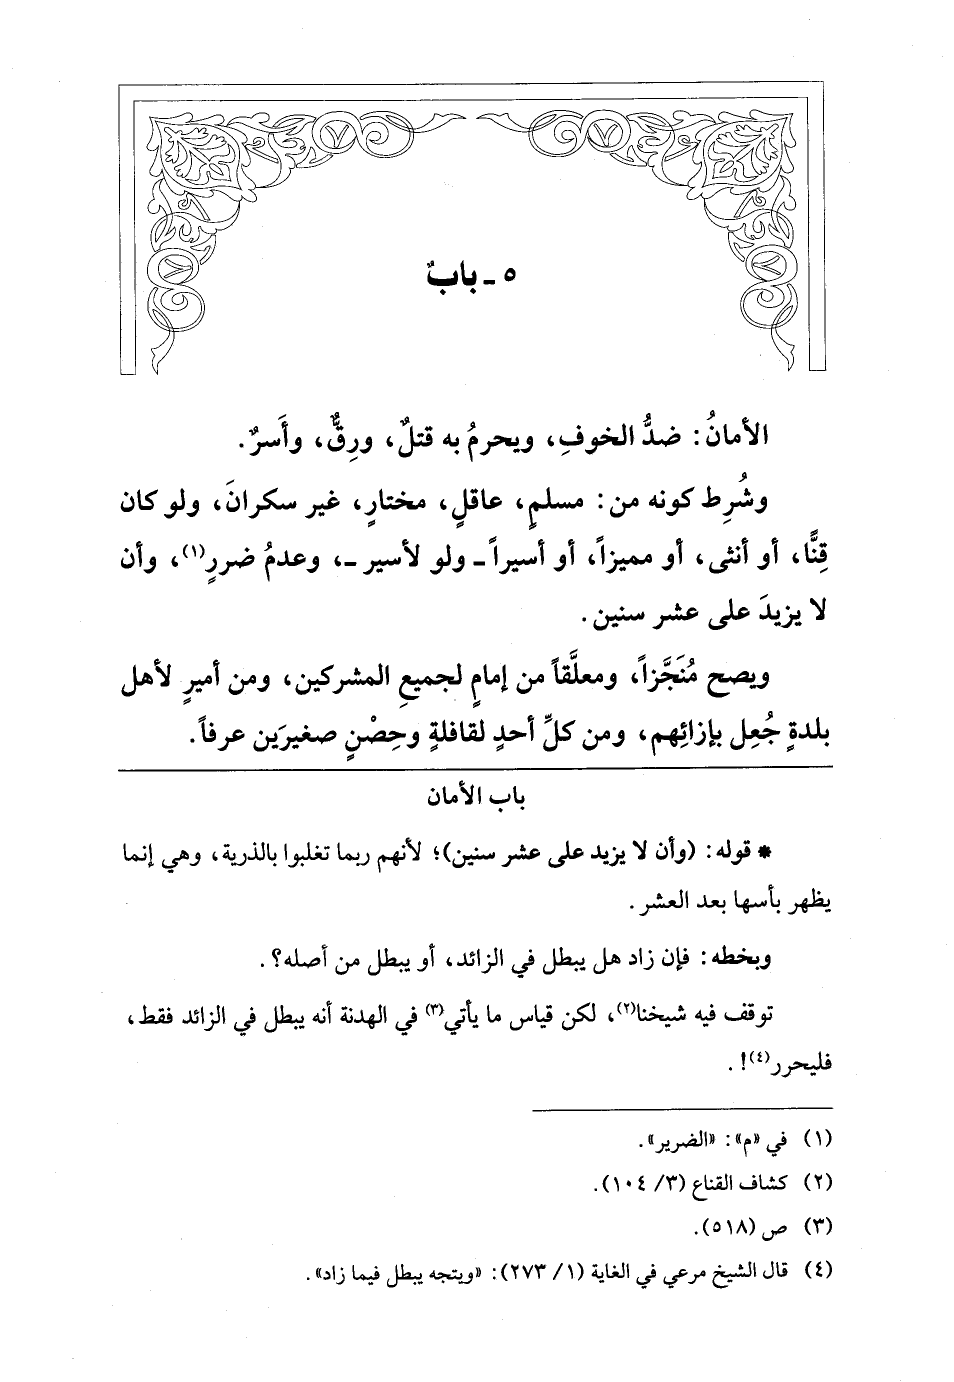 ٥ ـ بابٌ
الأمانُ: ضدُّ الخوفِ، ويحرمُ به قتلٌ، ورِقٌّ، وأَسرٌ.
وشُرِط كونه من: مسلمٍ، عاقلٍ، مختارٍ، غير سكرانَ، ولو كان
قِنًّا، أو أنثى، أو مميزاً، أو أسيراً ـ ولو لأسير ـ، وعدمُ ضررٍ(١)، وأن
لا يزيدَ على عشر سنين.
ويصح مُنَجَّزاً، ومعلَّقاً من إمامٍ لجميعِ المشركين، ومن أميرٍ لأهل
بلدةٍ جُعِل بإزائِهم، ومن كلِّ أحدٍ لقافلةٍ وحِصْنٍ صغيرَين عرفاً.
باب الأمان
* قوله: (وأن لا يزيد على عشر سنين)؛ لأنهم ربما تغلبوا بالذرية، وهي إنما
يظهر بأسها بعد العشر.
وبخطه: فإن زاد هل يبطل في الزائد، أو يبطل من أصله؟.
توقف فيه شيخنا(٢)، لكن قياس ما يأتي(٣) في الهدنة أنه يبطل في الزائد فقط،
فليحرر(٤)!.
(١) في «م»: «الضرير».
(٢) كشاف القناع (٣/ ١٠٤).
(٣) ص (٥١٨).
(٤) قال الشيخ مرعي في الغاية (١/ ٢٧٣): «ويتجه يبطل فيما زاد».